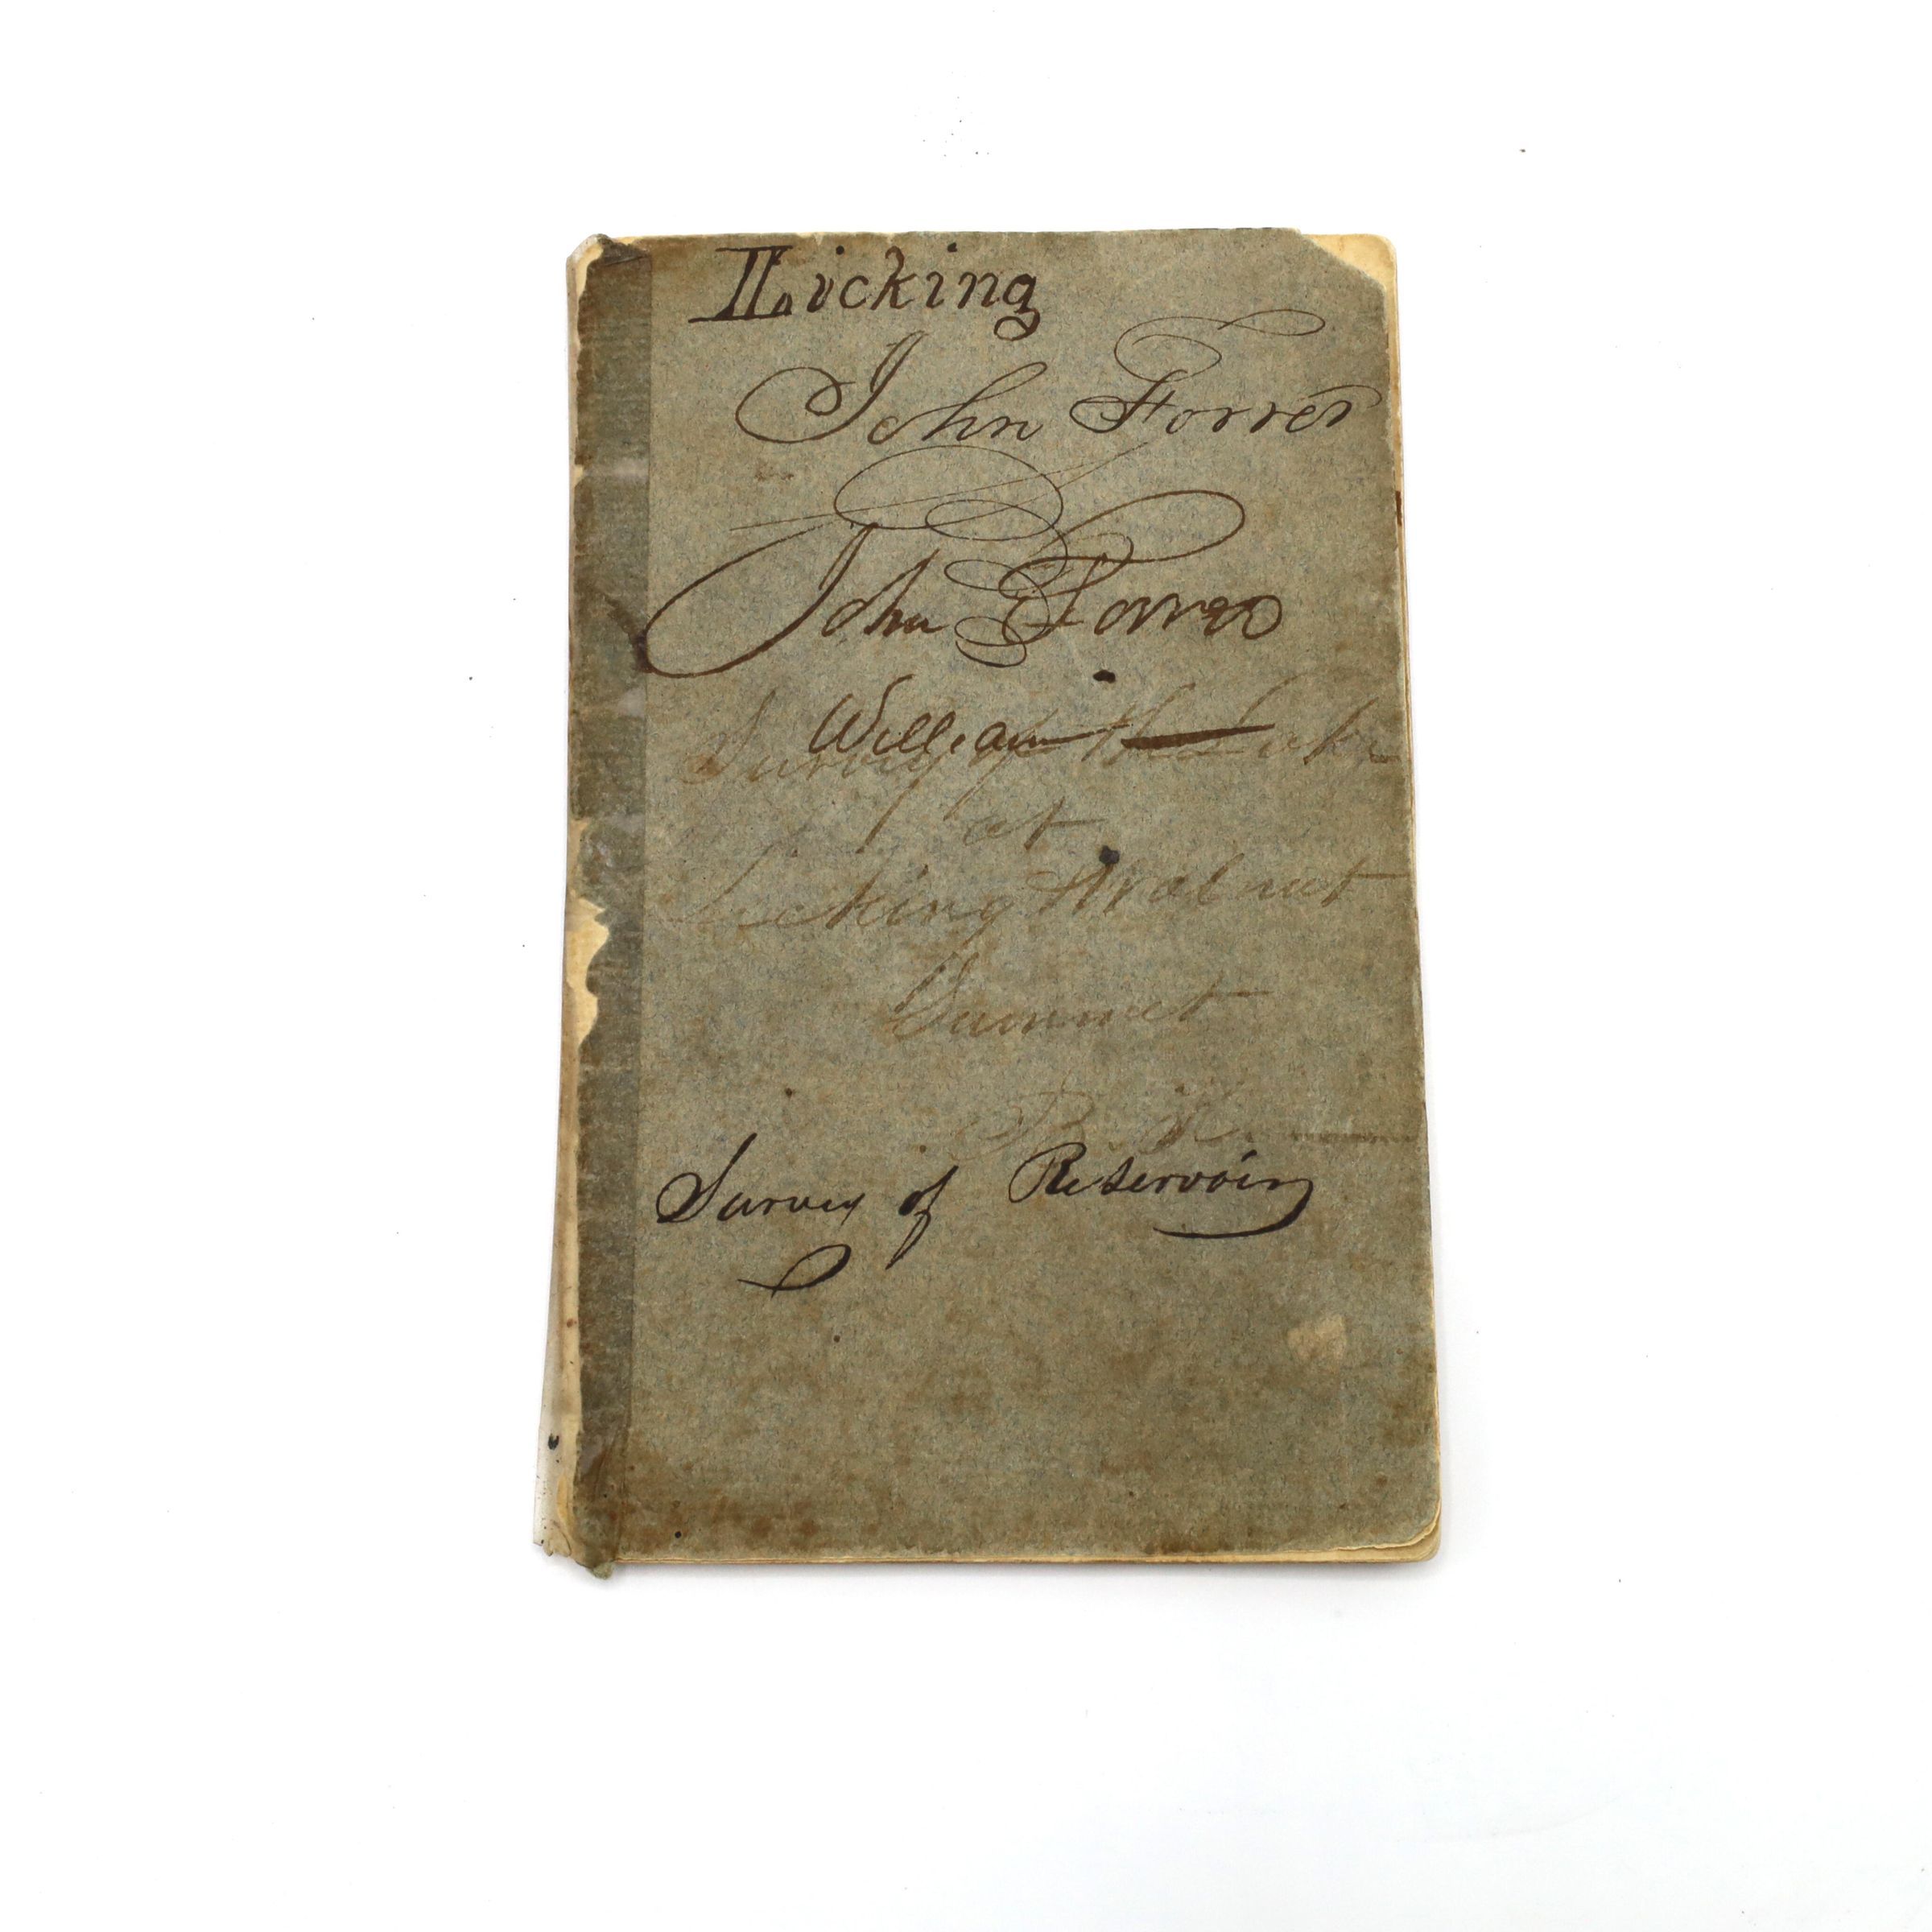 Licking
John Forrer
John Forrer
William
Survey of the Lake
at
Licking & Walnut
Summit
Survey of Reservoir